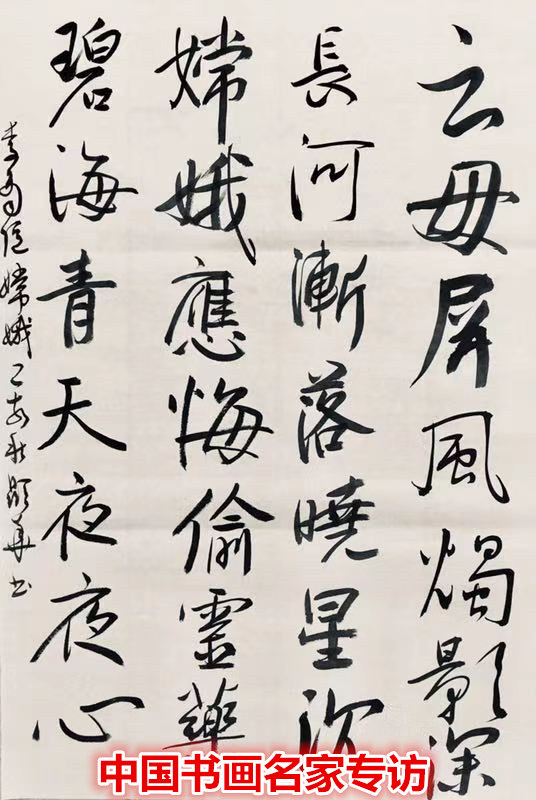 云母屏風燭影深
長河漸落曉星沉
嫦娥應悔偷靈藥
碧海青天夜夜心
李商隱嫦娥 乙亥秋 顯華书
中国书画名家专访